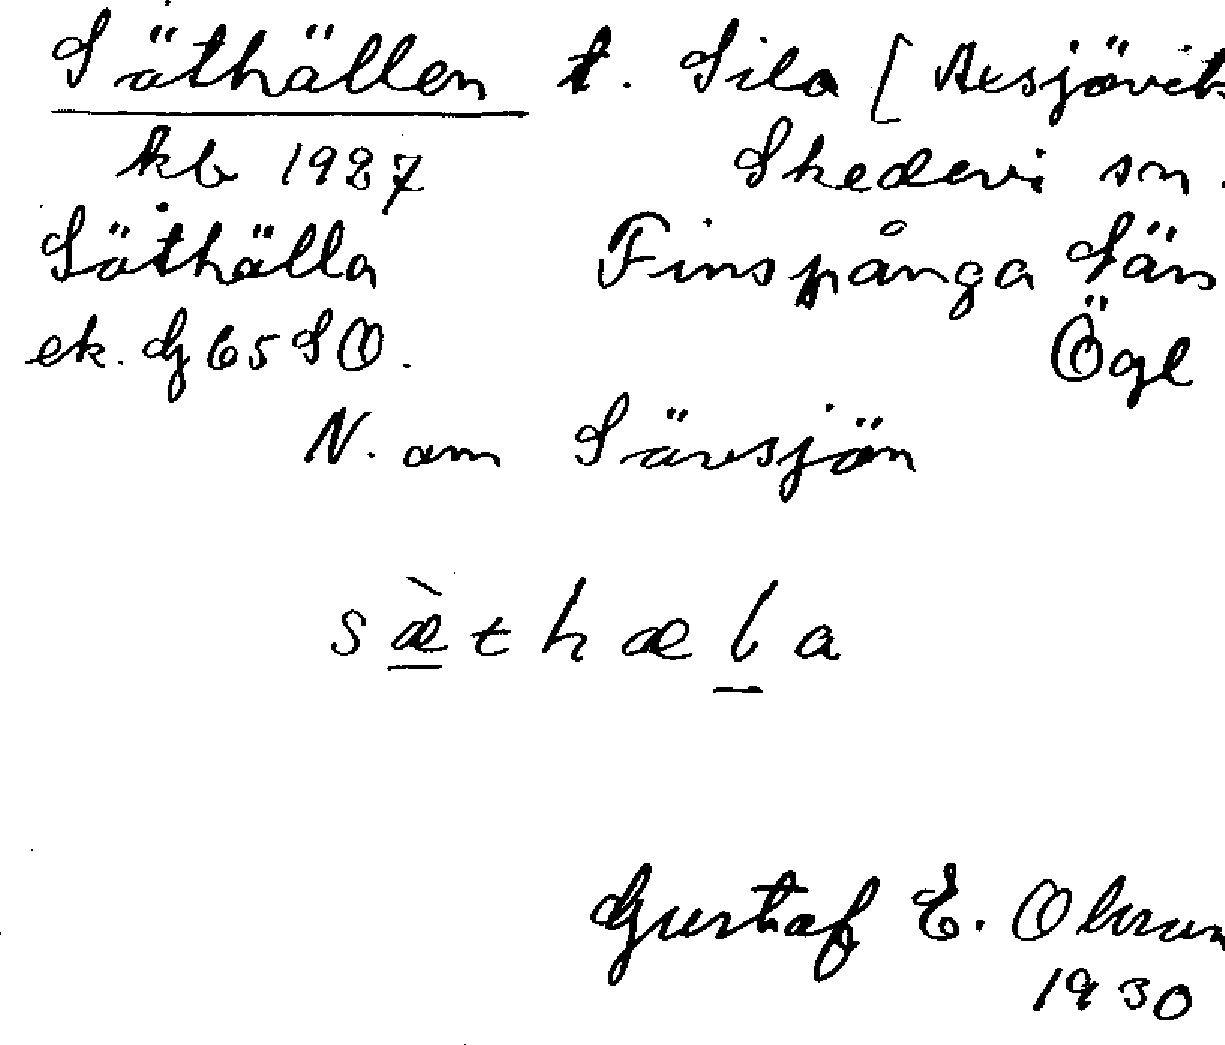 Säthällen t. Sila [Resjövik
kb 1927 Skedevi sn.
Säthälla Finspånga län
ek. G 65 SO. Ögl
N. om Sävsjön
sæ̀thæla
Gustaf E. Olsson
1930